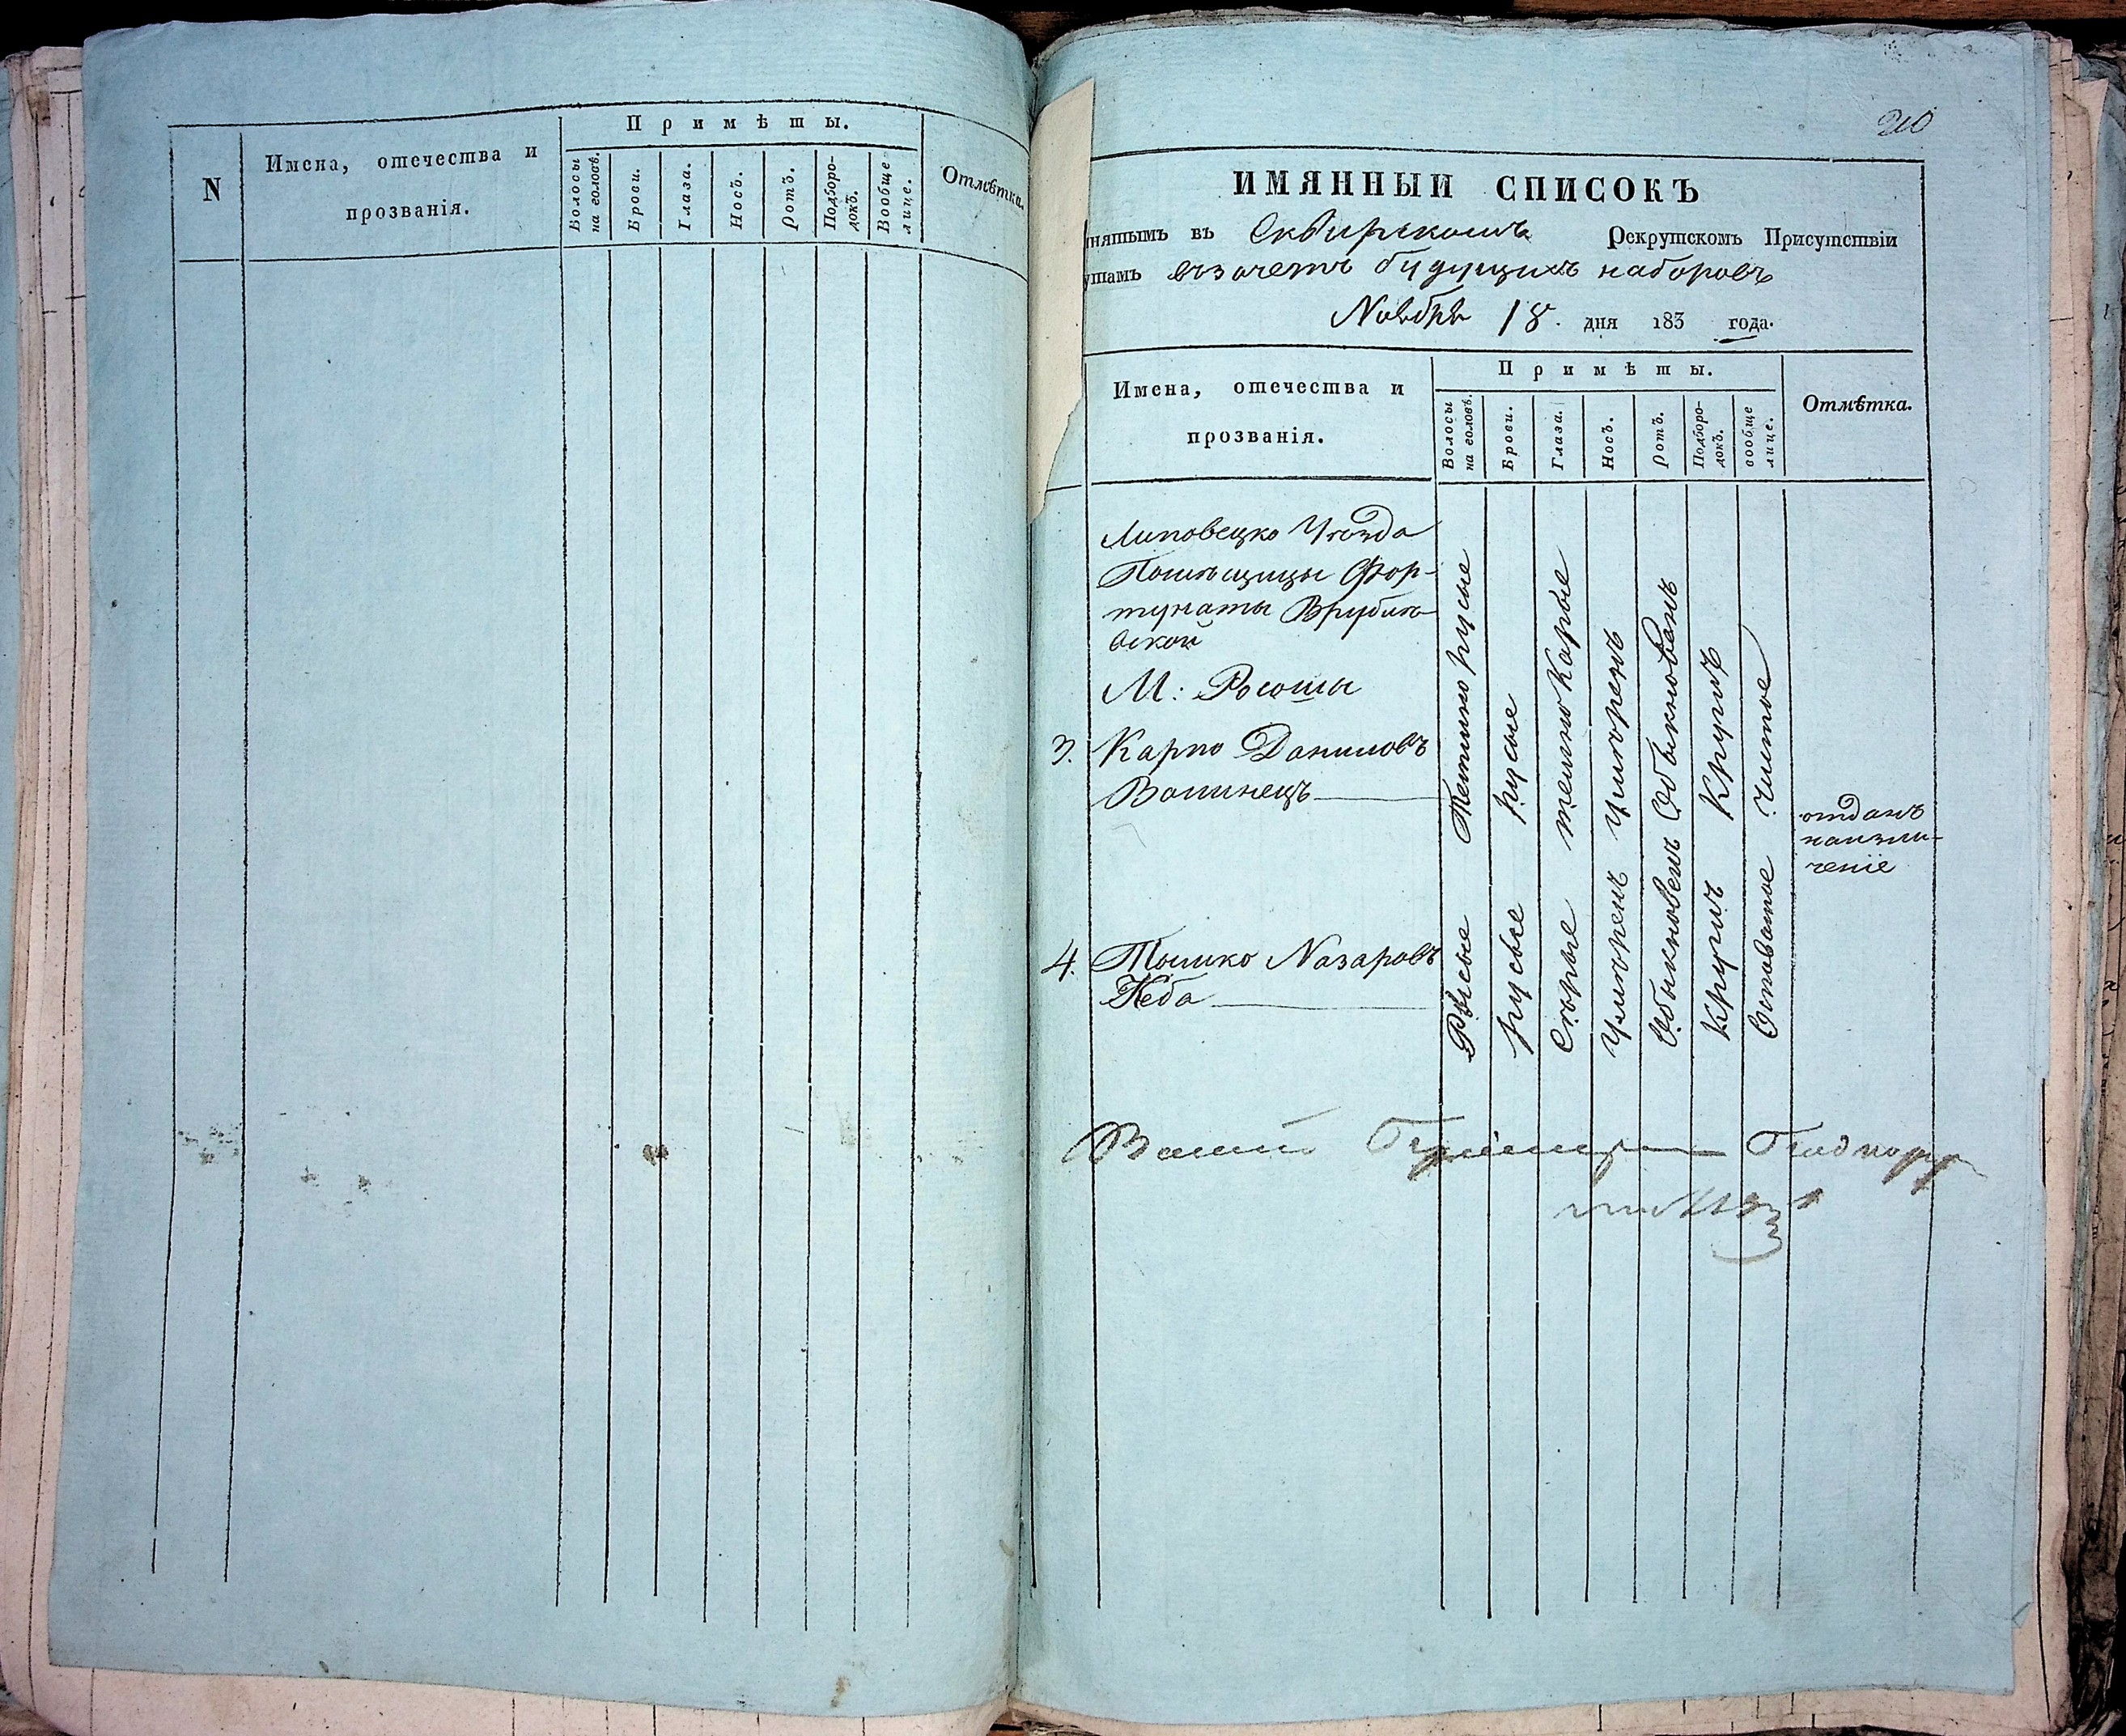 N
Имена, отечества и
прозванія.
Примѣты.
Волосы на головѣ.
Брови.
Глаза.
Носъ.
Ротъ.
Подборо-
докъ.
Вообще
лице.
Отмѣтка.
210
ИМЯННЫИ СПИСОКЪ
нятымъ въ Сквирскомъ Рекрутском Присутствіи
утамъ въ зачетъ будущихъ наборовъ
Ноября 18. дня 183 года.
Имена, отечества и
прозванія.
Примѣты.
Волосы
на головѣ.
Брови.
Глаза.
Носъ.
Ротъ.
Подборо-
докъ.
вообще
лице.
Отмѣтка.
Липовецко Уѣзда
Помѣщицы Фор-
тунаты
ской
М: Росоши
3. Карпо Даниловъ
Темно русые
русые
темно Карые
умѣренъ
Обыкновенъ
Круглъ
Чистое
отданъ
наизли-
ченіе
4. Томко Назаровъ
Кеба
Русые
русые
Сѣрые
Умѣренъ
Обыкновенъ
Круглъ
Осповатое